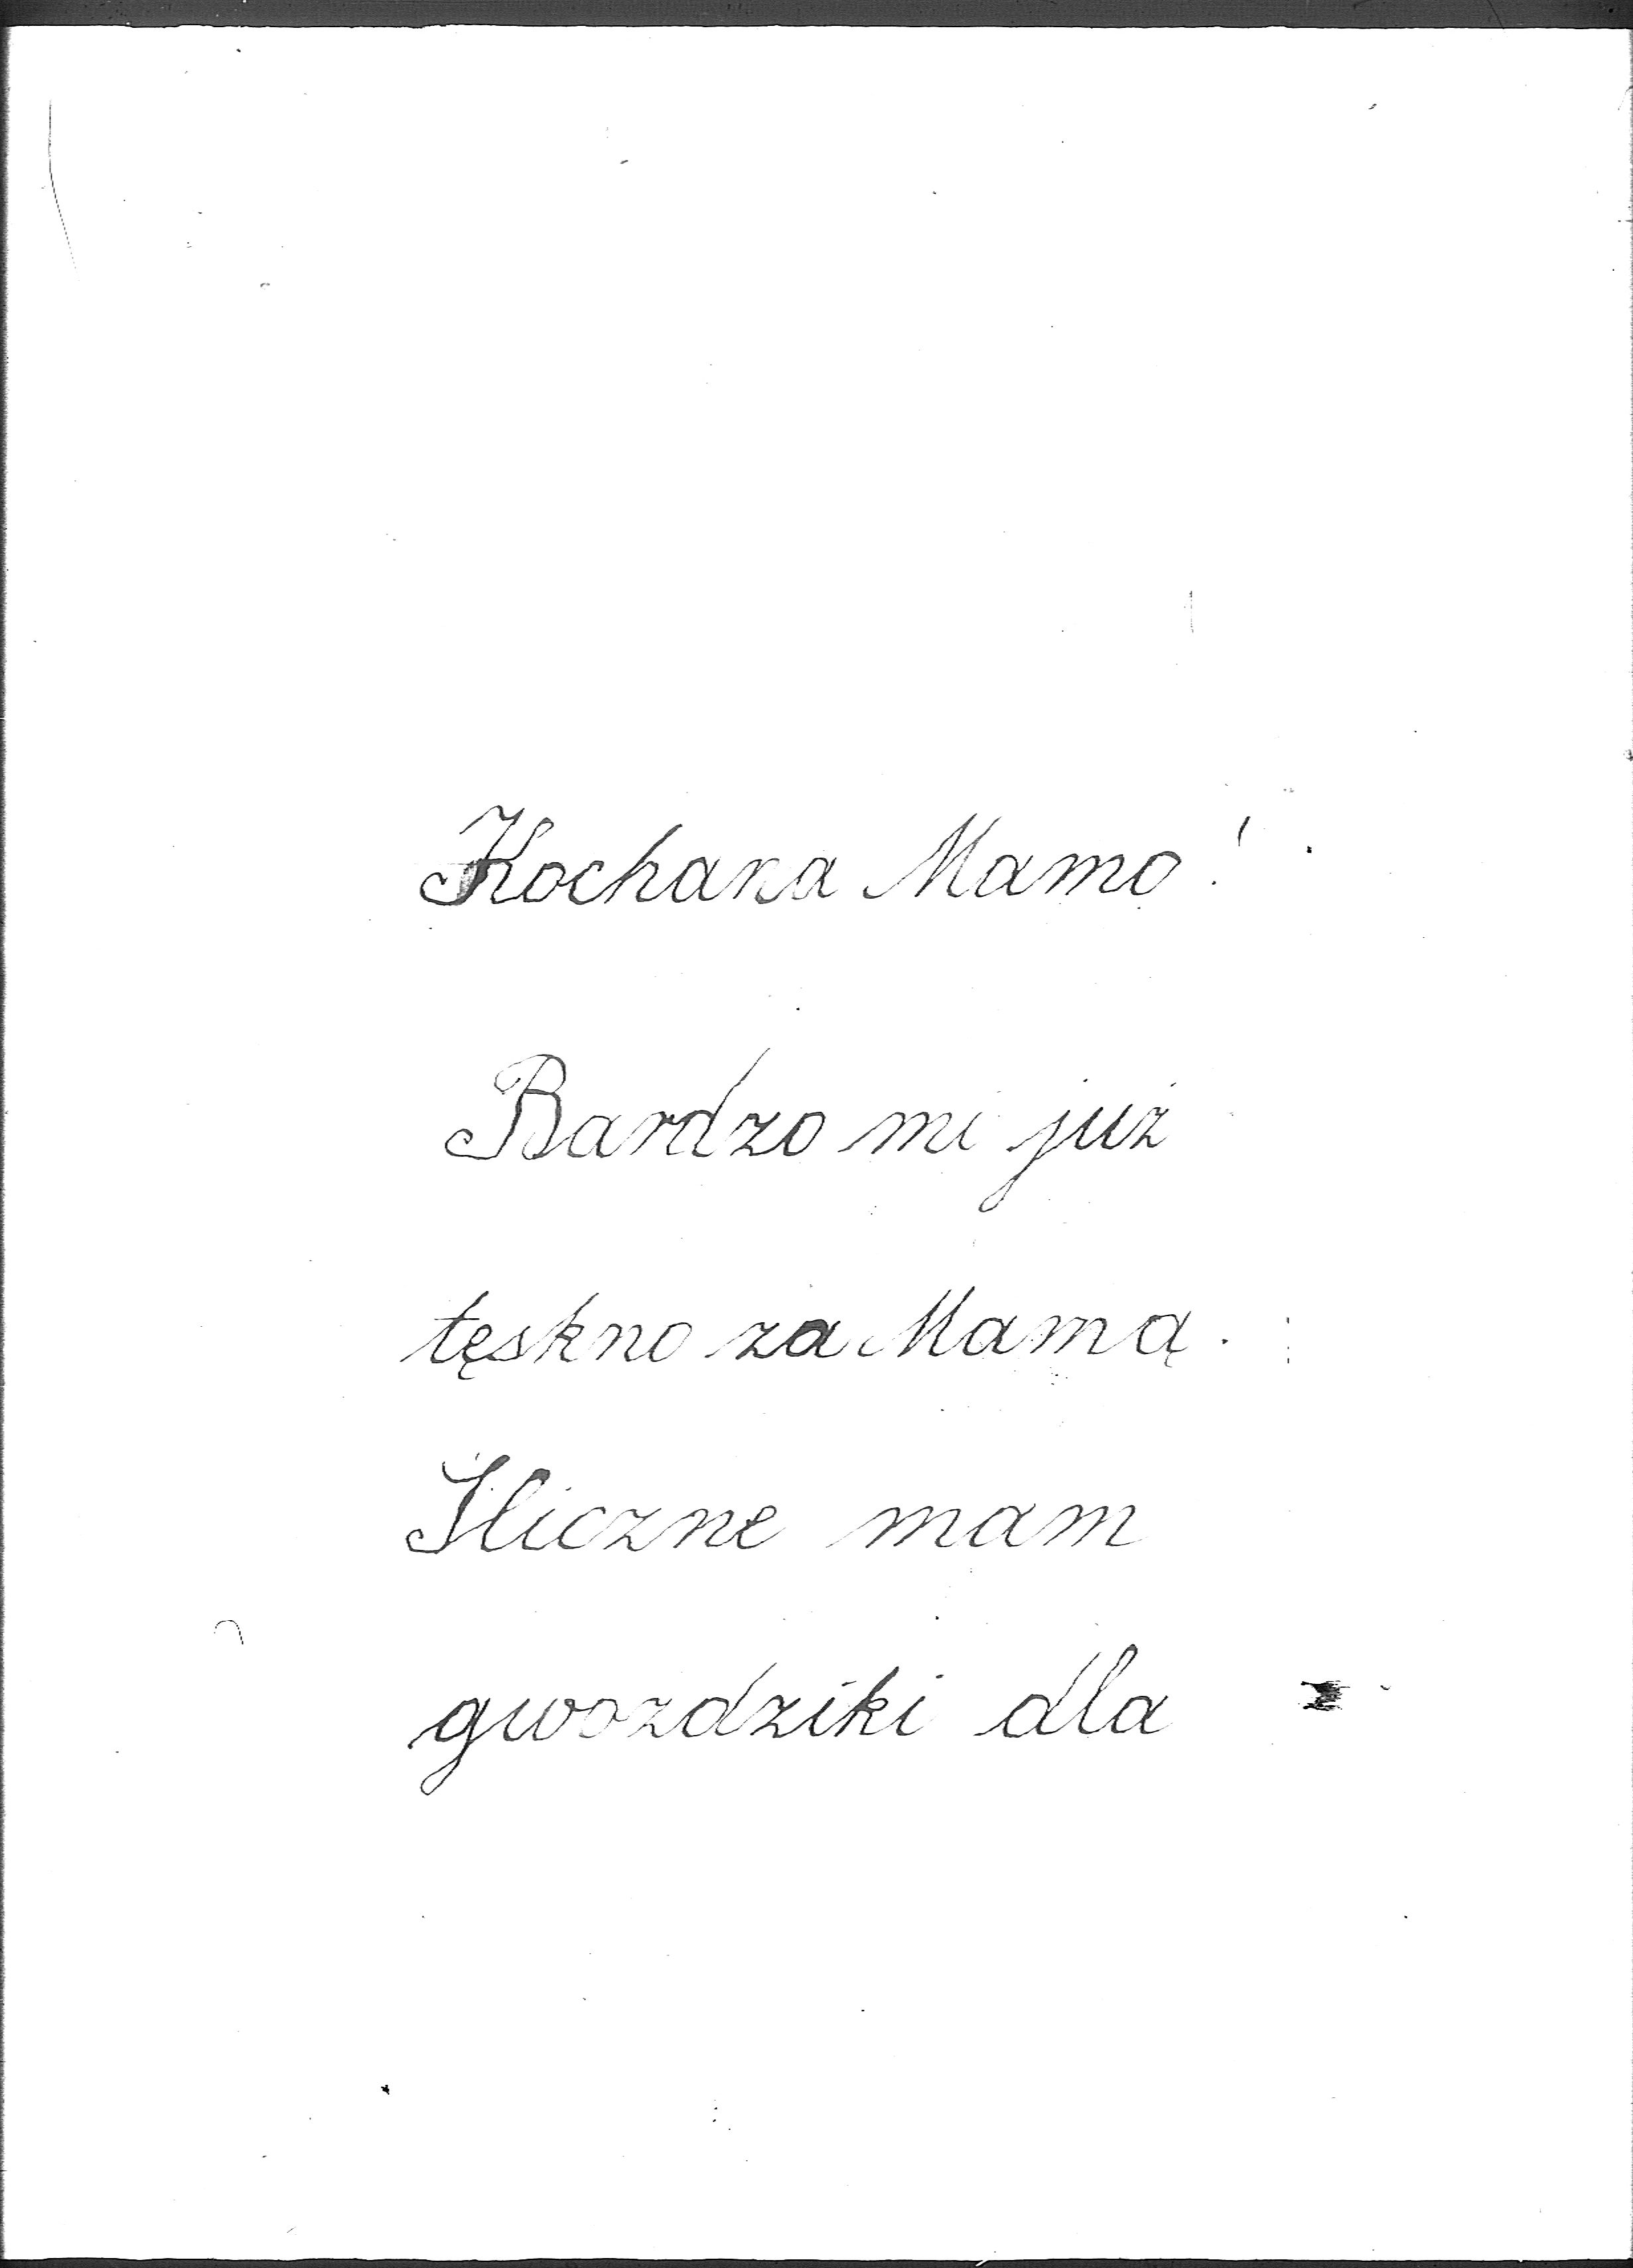 Kochana Mamo!
Bardzo mi już
tęskno za Mamą.
Śliczne mam
gwozdziki dla